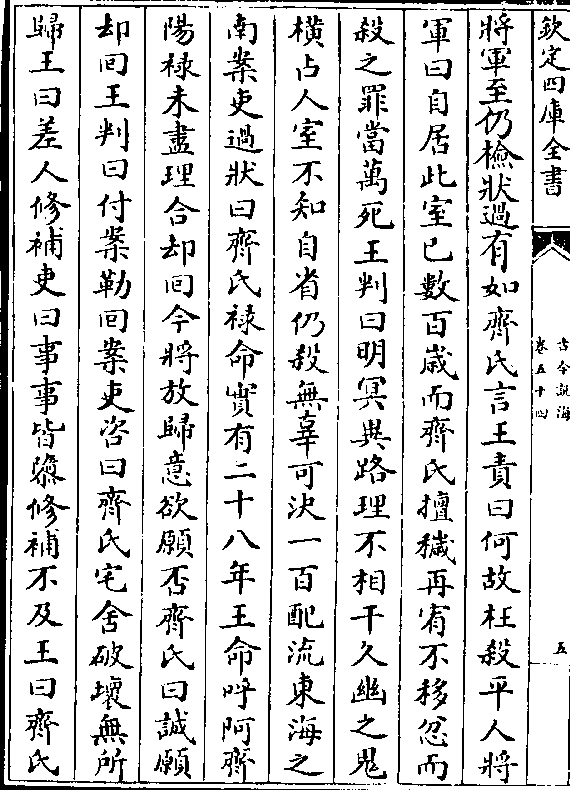 欽定四庫全書
古今說海
卷五十四
五
將軍至仍檢狀過有如齊氏言王責曰何故枉殺平人將
軍曰自居此室已數百歲而齊氏擅穢再宥不移忿而
殺之罪當萬死王判曰明冥異路理不相干久幽之鬼
橫占人室不知自省仍殺無辜可決一百配流東海之
南案吏過狀曰齊氏祿命實有二十八年王命呼阿齊
陽祿未盡理合却回今將放歸意欲願否齊氏曰誠願
却回王判曰付案勒回案吏咨曰齊氏宅舍破壞無所
歸王曰差人修補吏曰事事皆隳修補不及王曰齊氏